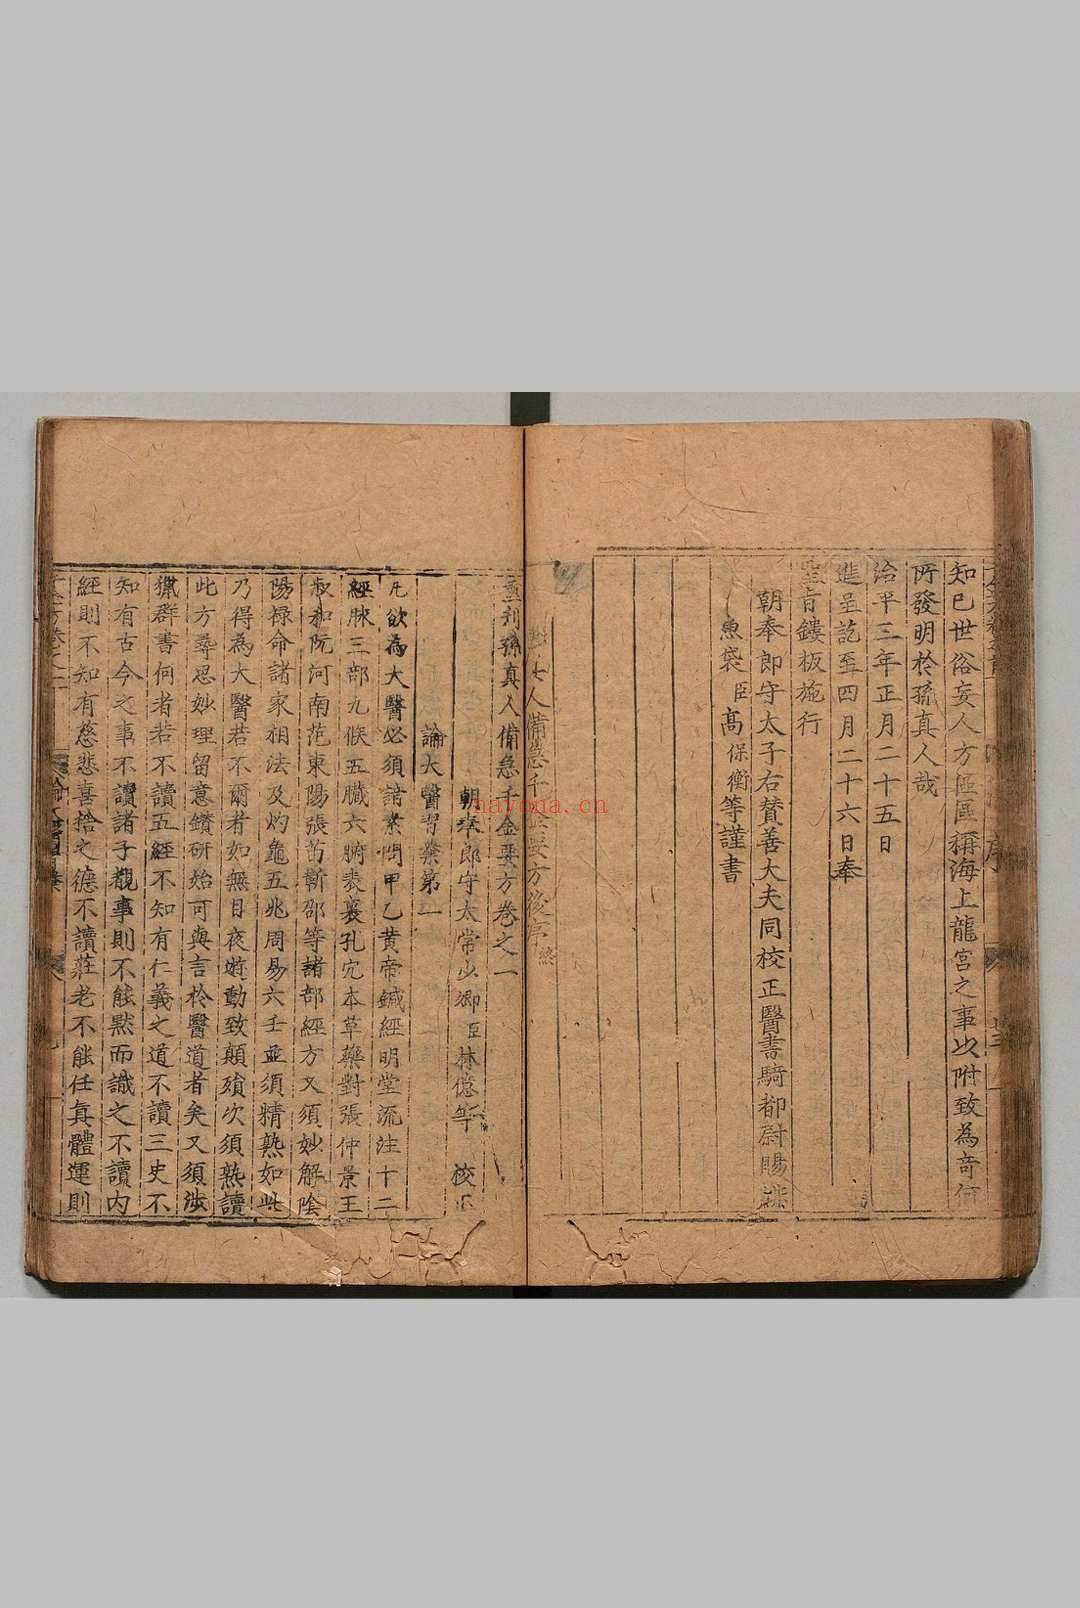 知已世俗妄人方區區稱海上龍宮之事以附致為奇何
所發明於孫真人哉
治平三年正月二十五日
進呈訖至四月二十六日奉
聖旨鏤板施行
朝奉郎守太子右贊善大夫同校正醫書騎都尉賜緋
魚袋臣高保衡等謹書
人備急千金要方後序 終
重刋孫真人備急千金要方卷之一
朝奉郎守太常少卿臣林億等 校正
論大醫習業第一
凡欲為大醫必須諳素問甲乙黃帝鍼經明堂流注十二
經脉三部九候五臟六腑表裏孔穴本草藥對張仲景王
叔和阮河南范東陽張苗靳邵等諸部經方又須妙解陰
陽祿命諸家相法及灼龜五兆周易六壬並須精熟如此
乃得為大醫若不爾者如無目夜遊動致顛殞次須熟讀
此方尋思妙理留意鑽研始可與言於醫道者矣又須涉
獵群書何者若不讀五經不知有仁義之道不讀三史不
知有古今之事不讀諸子覩事則不能黙而識之不讀内
經則不知有慈悲喜捨之德不讀莊老不能任真體運則
nayona.cn